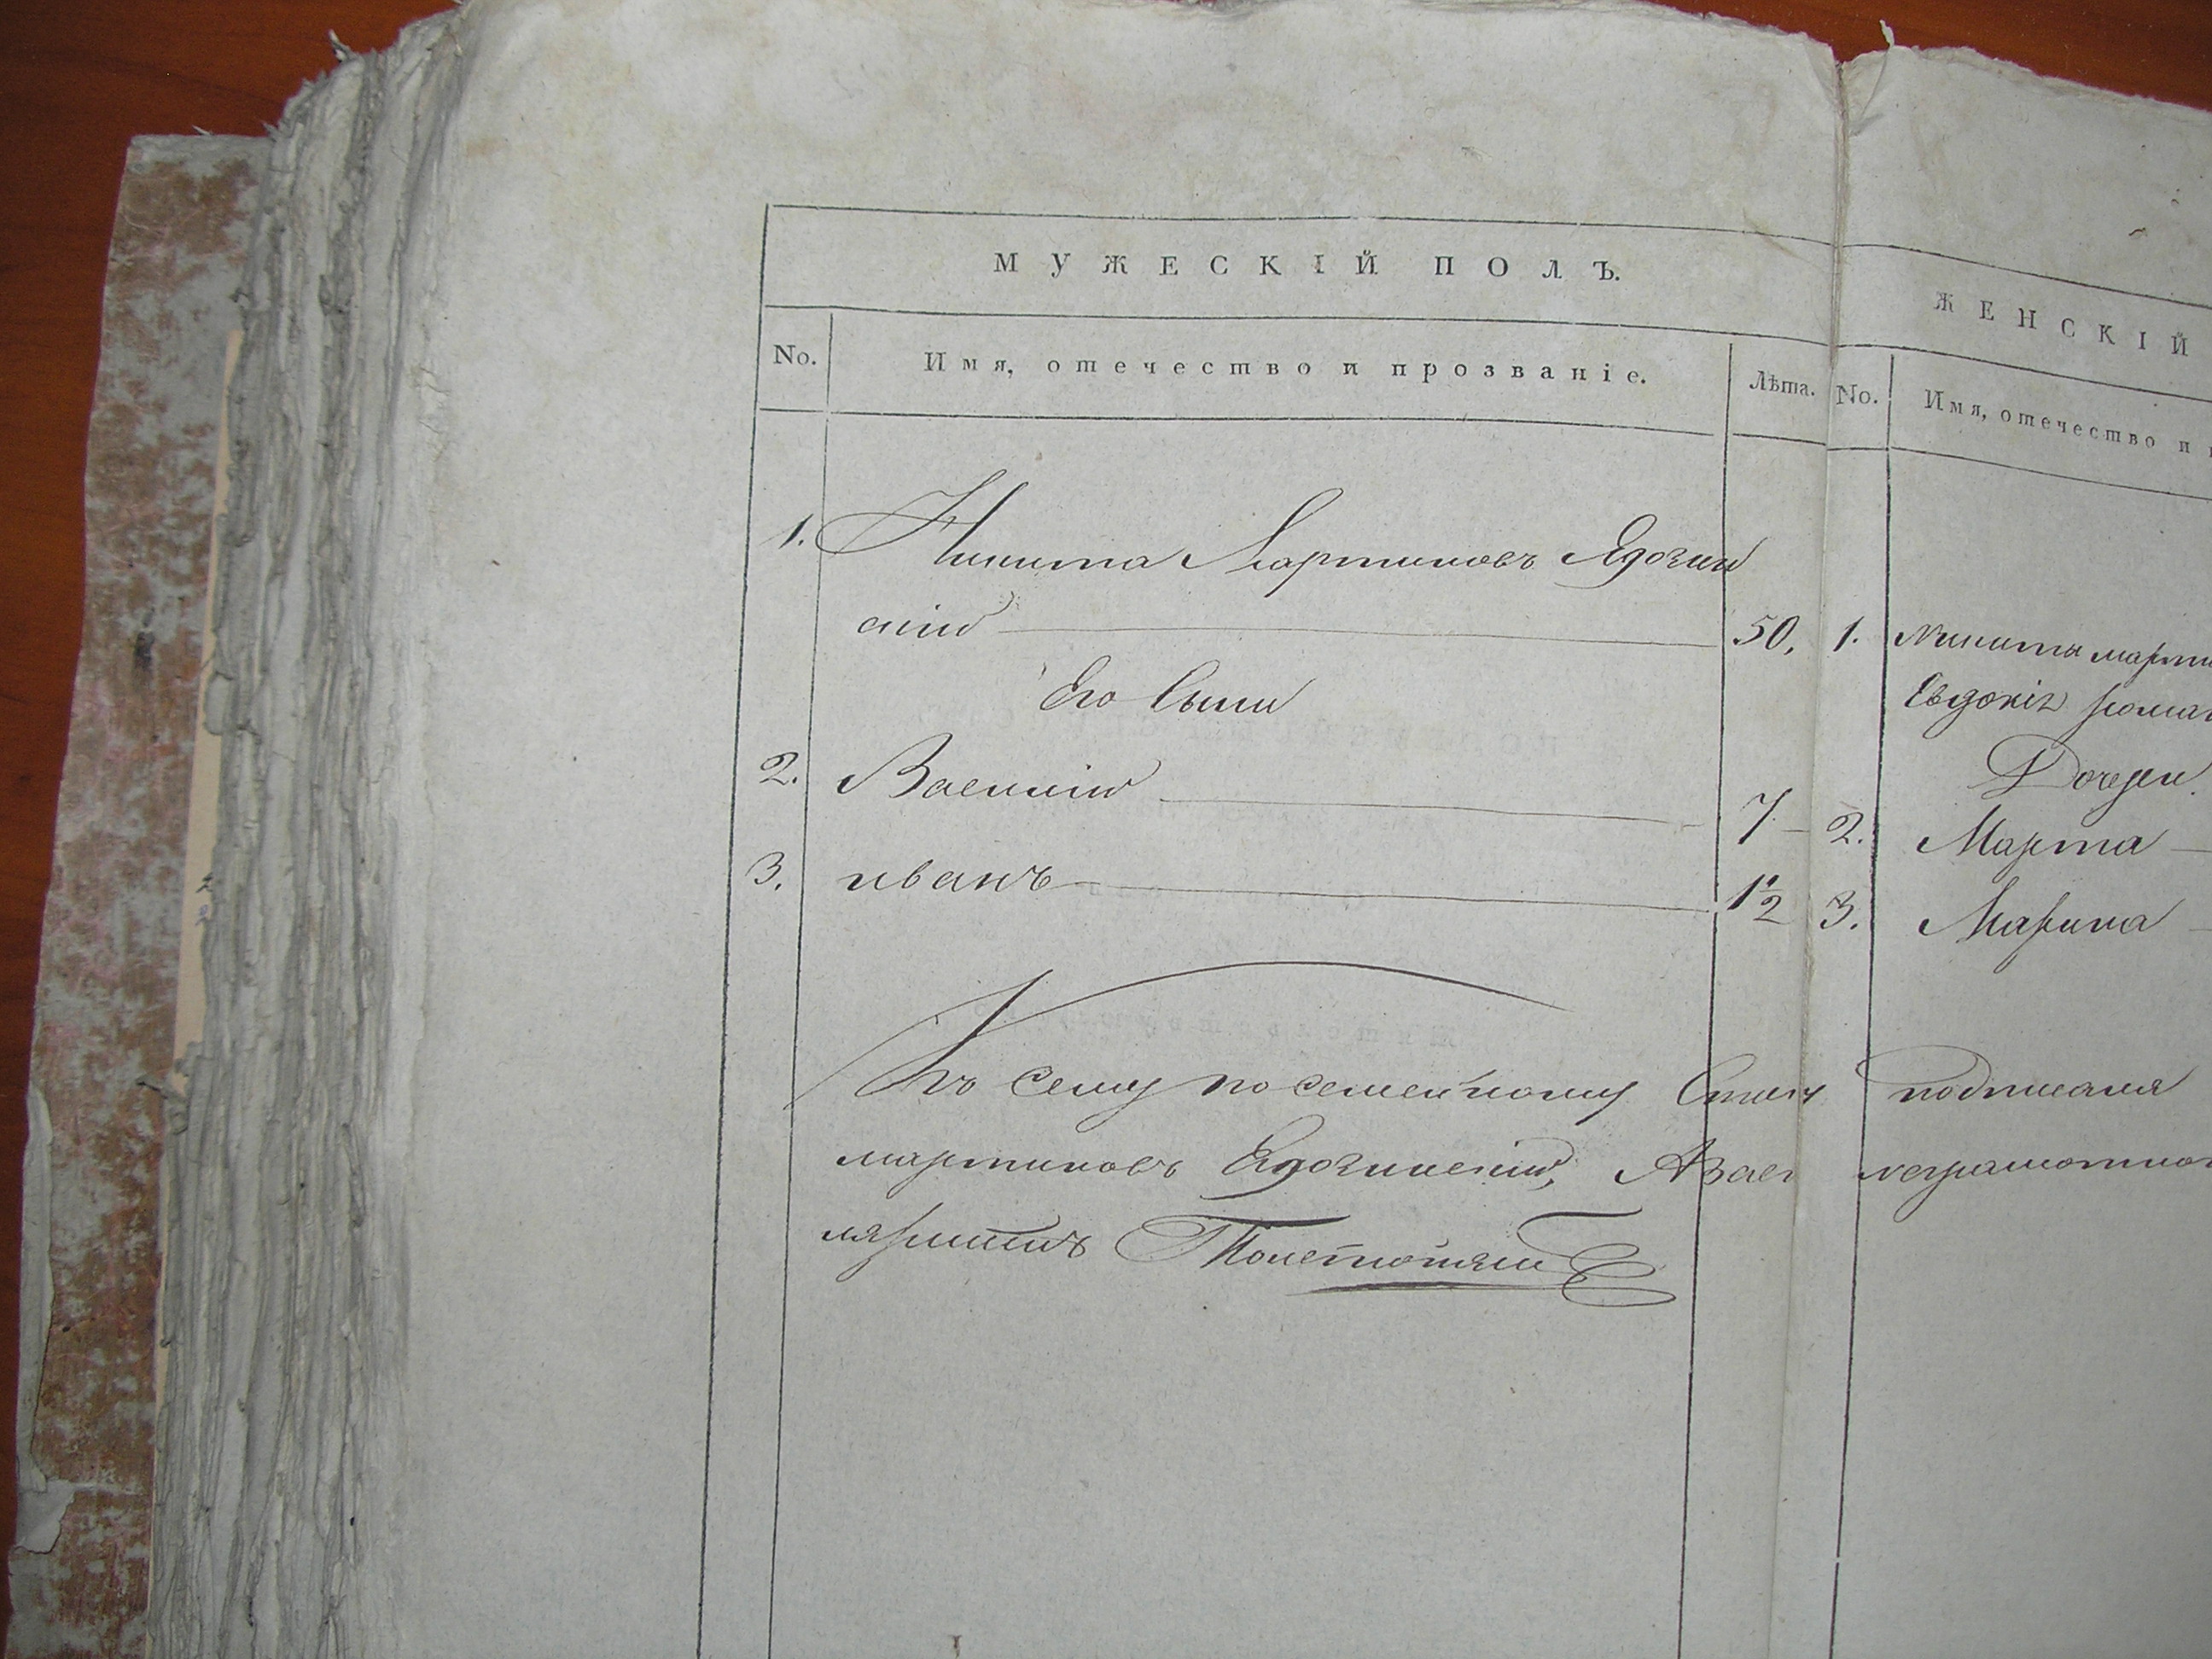 МУЖЕСКІЙ ПОЛЪ.
No. Имя, отечество и прозваніе. Лѣта.
1. Никита Мартиновъ Ядчин
скій 50.
Его Сыни
2. Василій 7
3. иванъ 1 1/2
ЖЕНСКІЙ
No. Имя, отечество и
1. Никити марти
Евдокія роман
Дочери.
2. Марта
3. Марина
Къ сему посемейному подписался
мартиновъ неграмотного